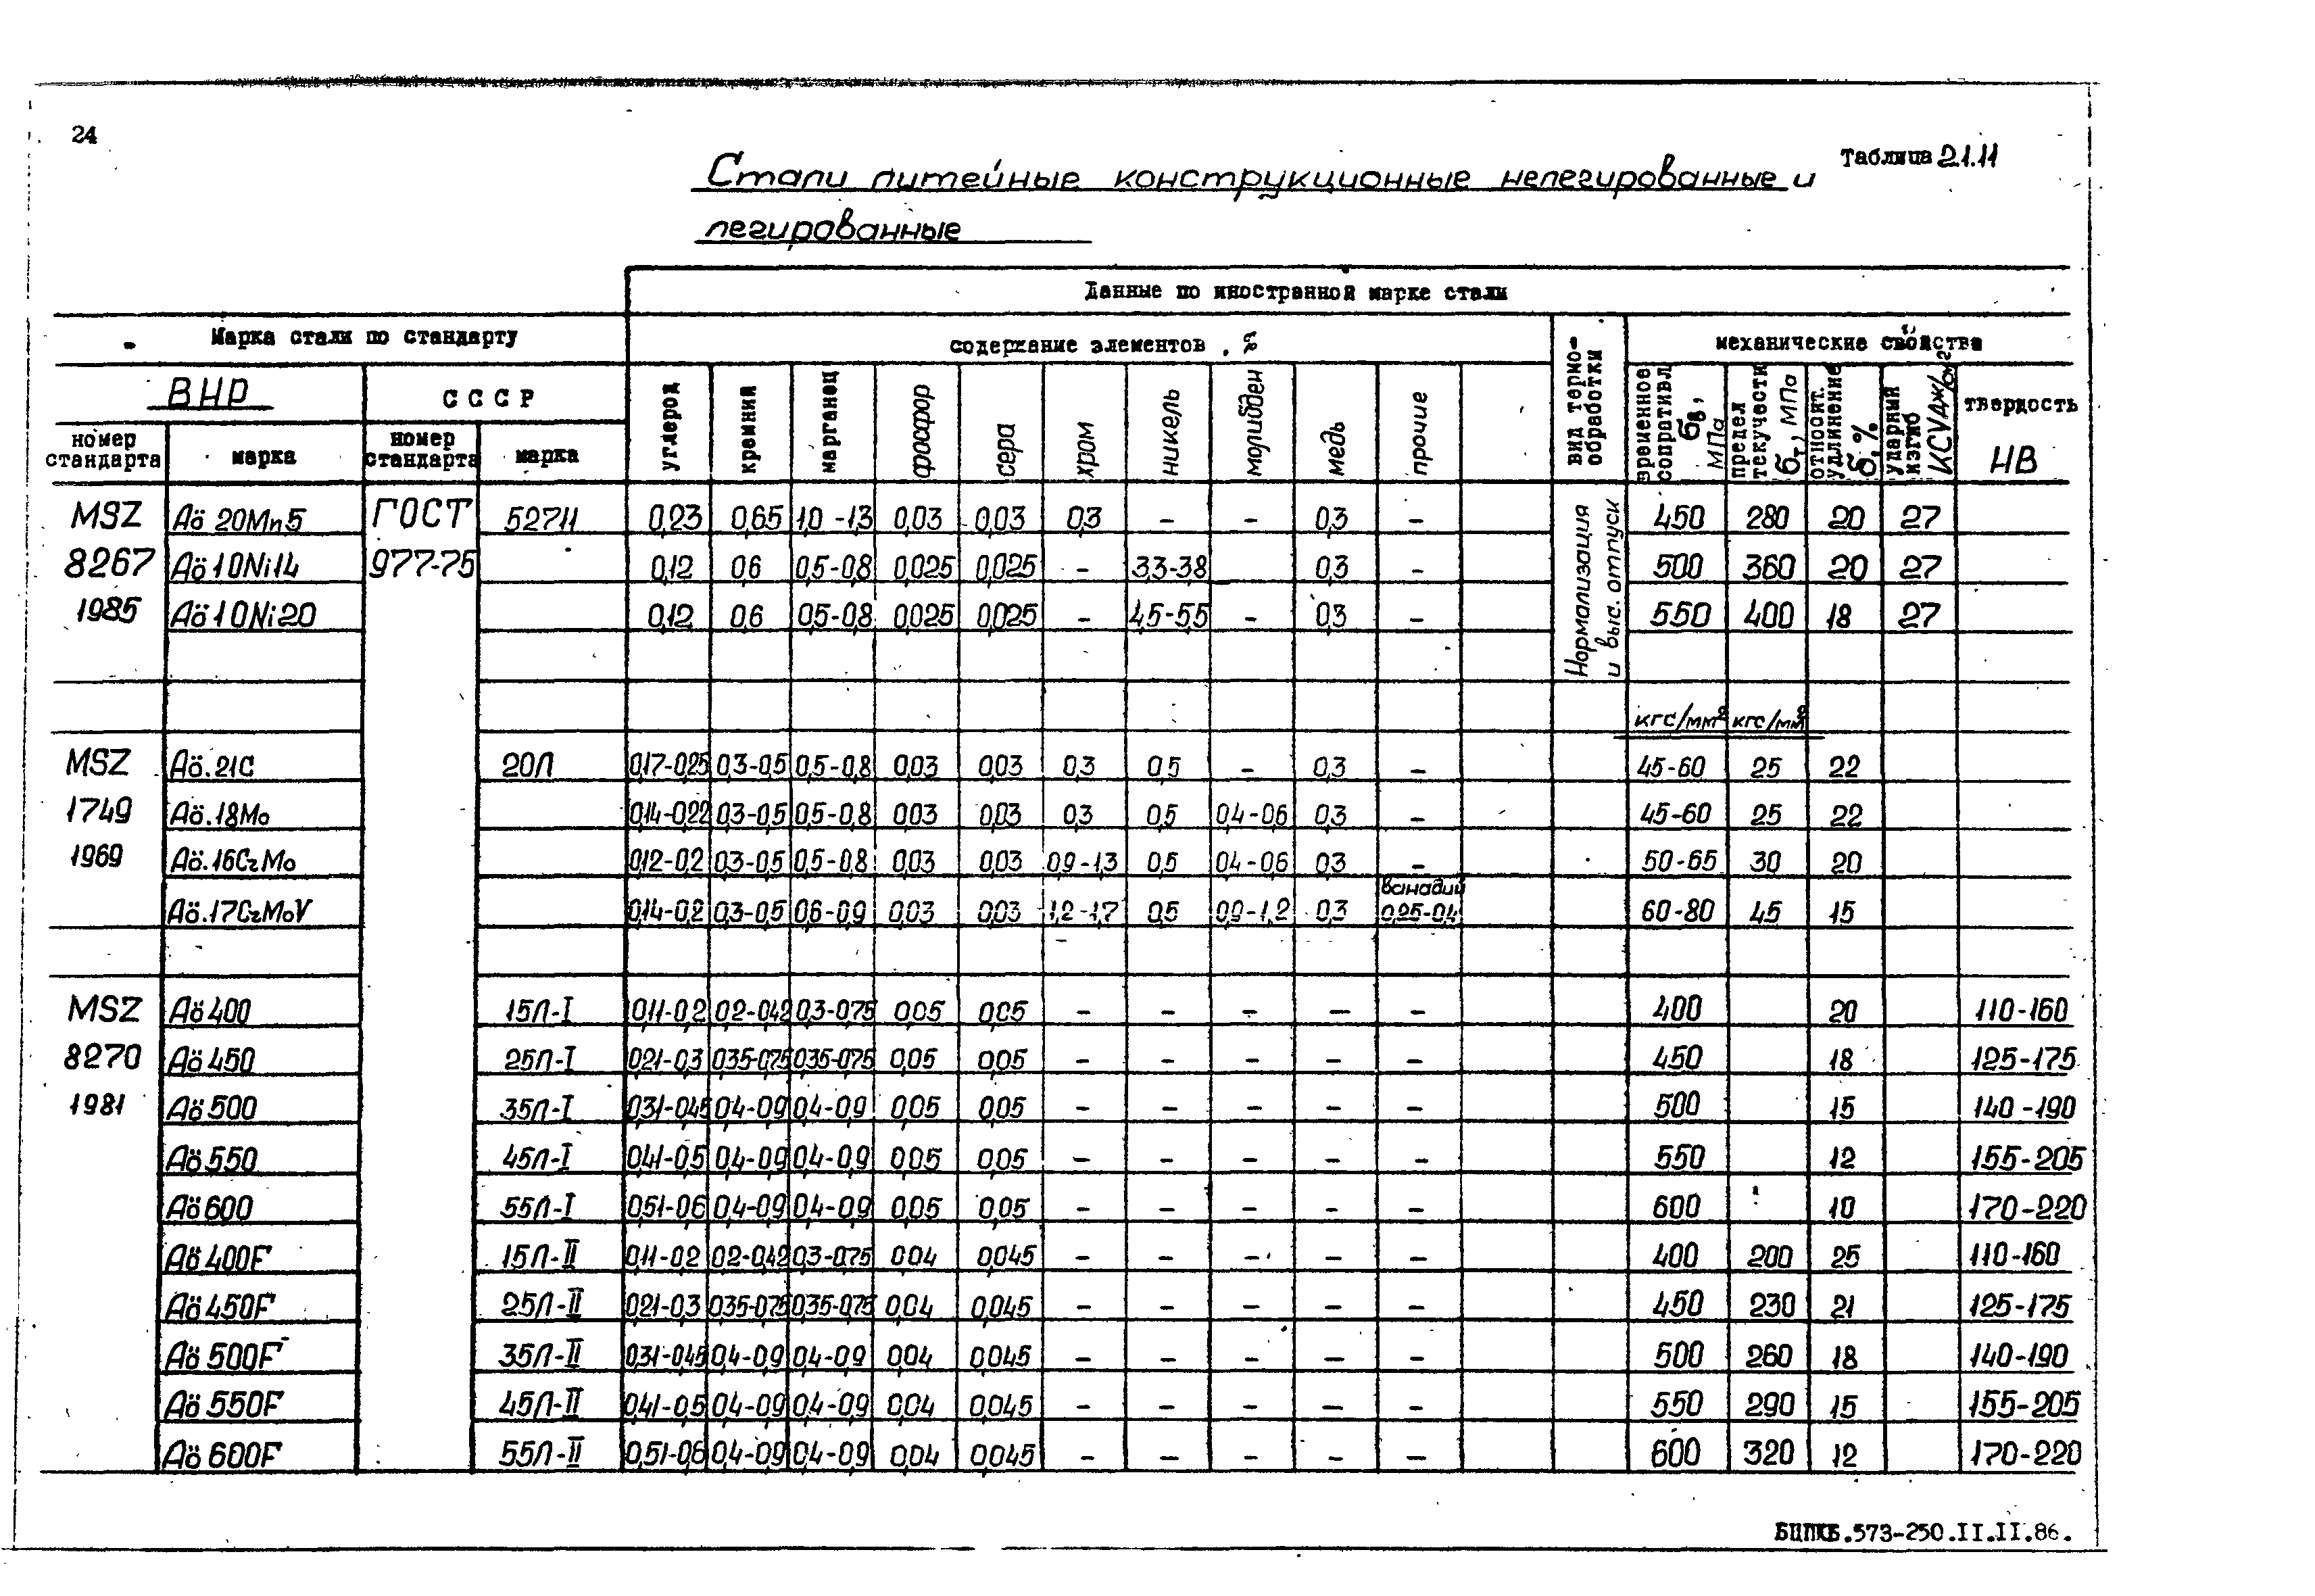 24
Таблица 2.1.11
Стали литейные конструкционные нелегированные и
легированные
Данные по иностранной марке стали
Марка стали по стандарту
содержание элементов, %
вид термо-
обработки
механические свойства
ВНР
СССР
номер
стандарта
марка
номер
стандарта
марка
углерод
кремний
марганец
фосфор
сера
хром
никель
молибден
медь
прочие
временное
сопративл.
σв,
МПа
предел
текучести
σт, МПа
относит.
удлинение
δ, %
ударный
изгиб
KCU Дж/см²
твердость
НВ
MSZ Aö 20Mn5 ГОСТ 52711 0,23 0,65 1,0-1,3 0,03 0,03 0,3 – – 0,3 – 450 280 20 27
8267 Aö10Ni14 977-75 0,12 0,6 0,5-0,8 0,025 0,025 – 3,3-3,8 0,3 – 500 360 20 27
1985 Aö10Ni20 0,12 0,6 0,5-0,8 0,025 0,025 – 4,5-5,5 – 0,3 – 550 400 18 27
Нормализация
и выс. отпуск
кгс/мм² кгс/мм²
MSZ Aö.21C 20Л 0,17-0,25 0,3-0,5 0,5-0,8 0,03 0,03 0,3 0,5 – 0,3 – 45-60 25 22
1749 Aö.18Mo 0,14-0,22 0,3-0,5 0,5-0,8 0,03 0,03 0,3 0,5 0,4-0,6 0,3 – 45-60 25 22
1969 Aö.16CrMo 0,12-0,2 0,3-0,5 0,5-0,8 0,03 0,03 0,9-1,3 0,5 0,4-0,6 0,3 – 50-65 30 20
ванадий
Aö.17CrMoV 0,14-0,2 0,3-0,5 0,6-0,9 0,03 0,03 1,2-1,7 0,5 0,9-1,2 0,3 0,25-0,4 60-80 45 15
MSZ Aö400 15Л-I 0,11-0,2 0,2-0,42 0,3-0,75 0,05 0,05 – – – – – 400 20 110-160
8270 Aö450 25Л-I 0,21-0,3 0,35-0,75 0,35-0,75 0,05 0,05 – – – – – 450 18 125-175
1981 Aö500 35Л-I 0,31-0,45 0,4-0,9 0,4-0,9 0,05 0,05 – – – – – 500 15 140-190
Aö550 45Л-I 0,41-0,5 0,4-0,9 0,4-0,9 0,05 0,05 – – – – – 550 12 155-205
Aö600 55Л-I 0,51-0,6 0,4-0,9 0,4-0,9 0,05 0,05 – – – – – 600 10 170-220
Aö400F 15Л-II 0,11-0,2 0,2-0,42 0,3-0,75 0,04 0,045 – – – – – 400 200 25 110-160
Aö450F 25Л-II 0,21-0,3 0,35-0,75 0,35-0,75 0,04 0,045 – – – – – 450 230 21 125-175
Aö500F 35Л-II 0,31-0,45 0,4-0,9 0,4-0,9 0,04 0,045 – – – – – 500 260 18 140-190
Aö550F 45Л-II 0,41-0,5 0,4-0,9 0,4-0,9 0,04 0,045 – – – – – 550 290 15 155-205
Aö600F 55Л-II 0,51-0,6 0,4-0,9 0,4-0,9 0,04 0,045 – – – – – 600 320 12 170-220
БЦПКБ.573-250.II.II.86.